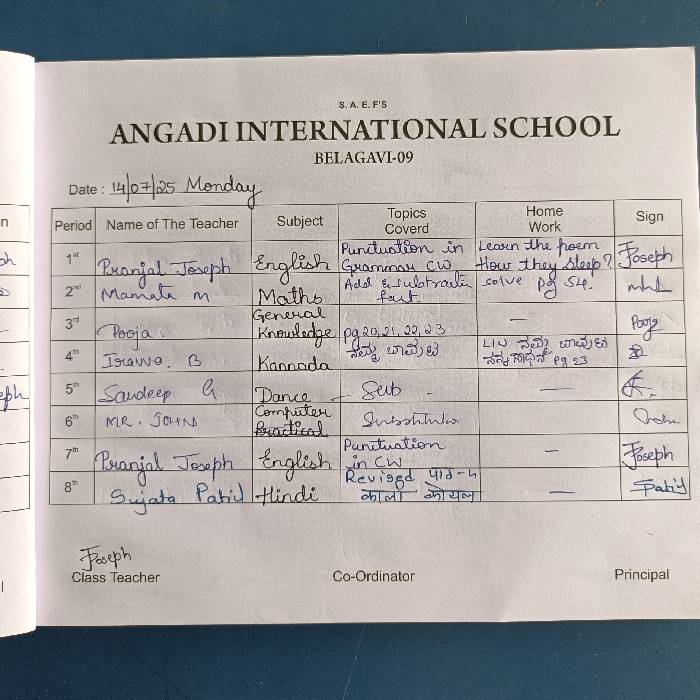 S. A. E. F'S
ANGADI INTERNATIONAL SCHOOL
BELAGAVI-09
Date : 14/07/25 Monday
Period Name of The Teacher Subject Topics Coverd Home Work Sign
1st Pranjal Joseph English Punctuation in Grammar CW Learn the poem How they sleep? Joseph
2nd Mamata M Maths Add & subtraction fact solve pg 54.
3rd Pooja. General Knowledge pg 20,21,22,23 — Pooja
4th Irawwa. B Kannada ನಮ್ಮ ಬಾವುಟ ನಮ್ಮ ಬಾವುಟ pg 23
5th Sandeep G Dance – Sub —
6th MR. JOHN Computer Practical Substitution — John
7th Pranjal Joseph English Punctuation in CW — Joseph
8th Sujata Patil Hindi Revised पाठ-4 काला कोयल — Patil
Joseph
Class Teacher Co-Ordinator Principal